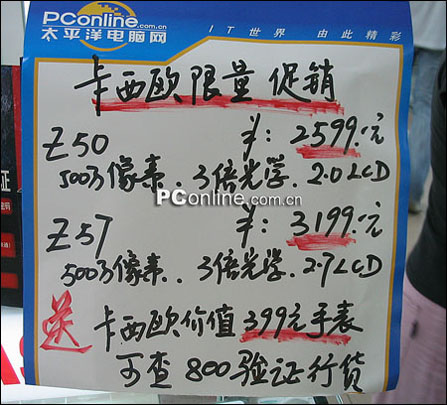 PConline.com.cn
太平洋电脑网 IT世界 由此精彩
卡西欧限量促销
Z50 ¥:2599.元
500万像素.3倍光学.2.0LCD
PConline.com.cn
Z57 ¥:3199.元
500万像素.3倍光学.2.7LCD
送 卡西欧价值399元手表
可查800验证行货